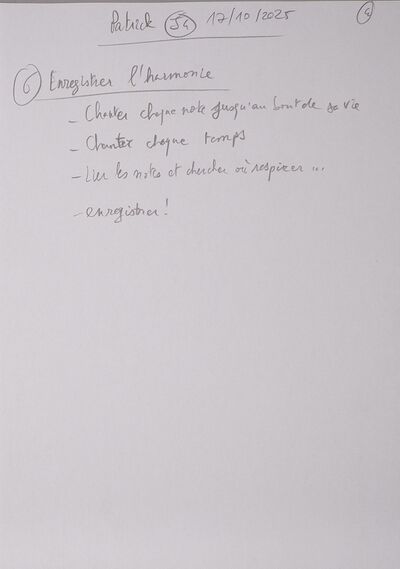 Patrick 54 17/10/2025
6 Enregistrer l'harmonie
- Chanter chaque note jusqu'au bout de sa vie
- Chanter chaque temps
- Lier les notes et chercher où respirer ...
- enregistrer !